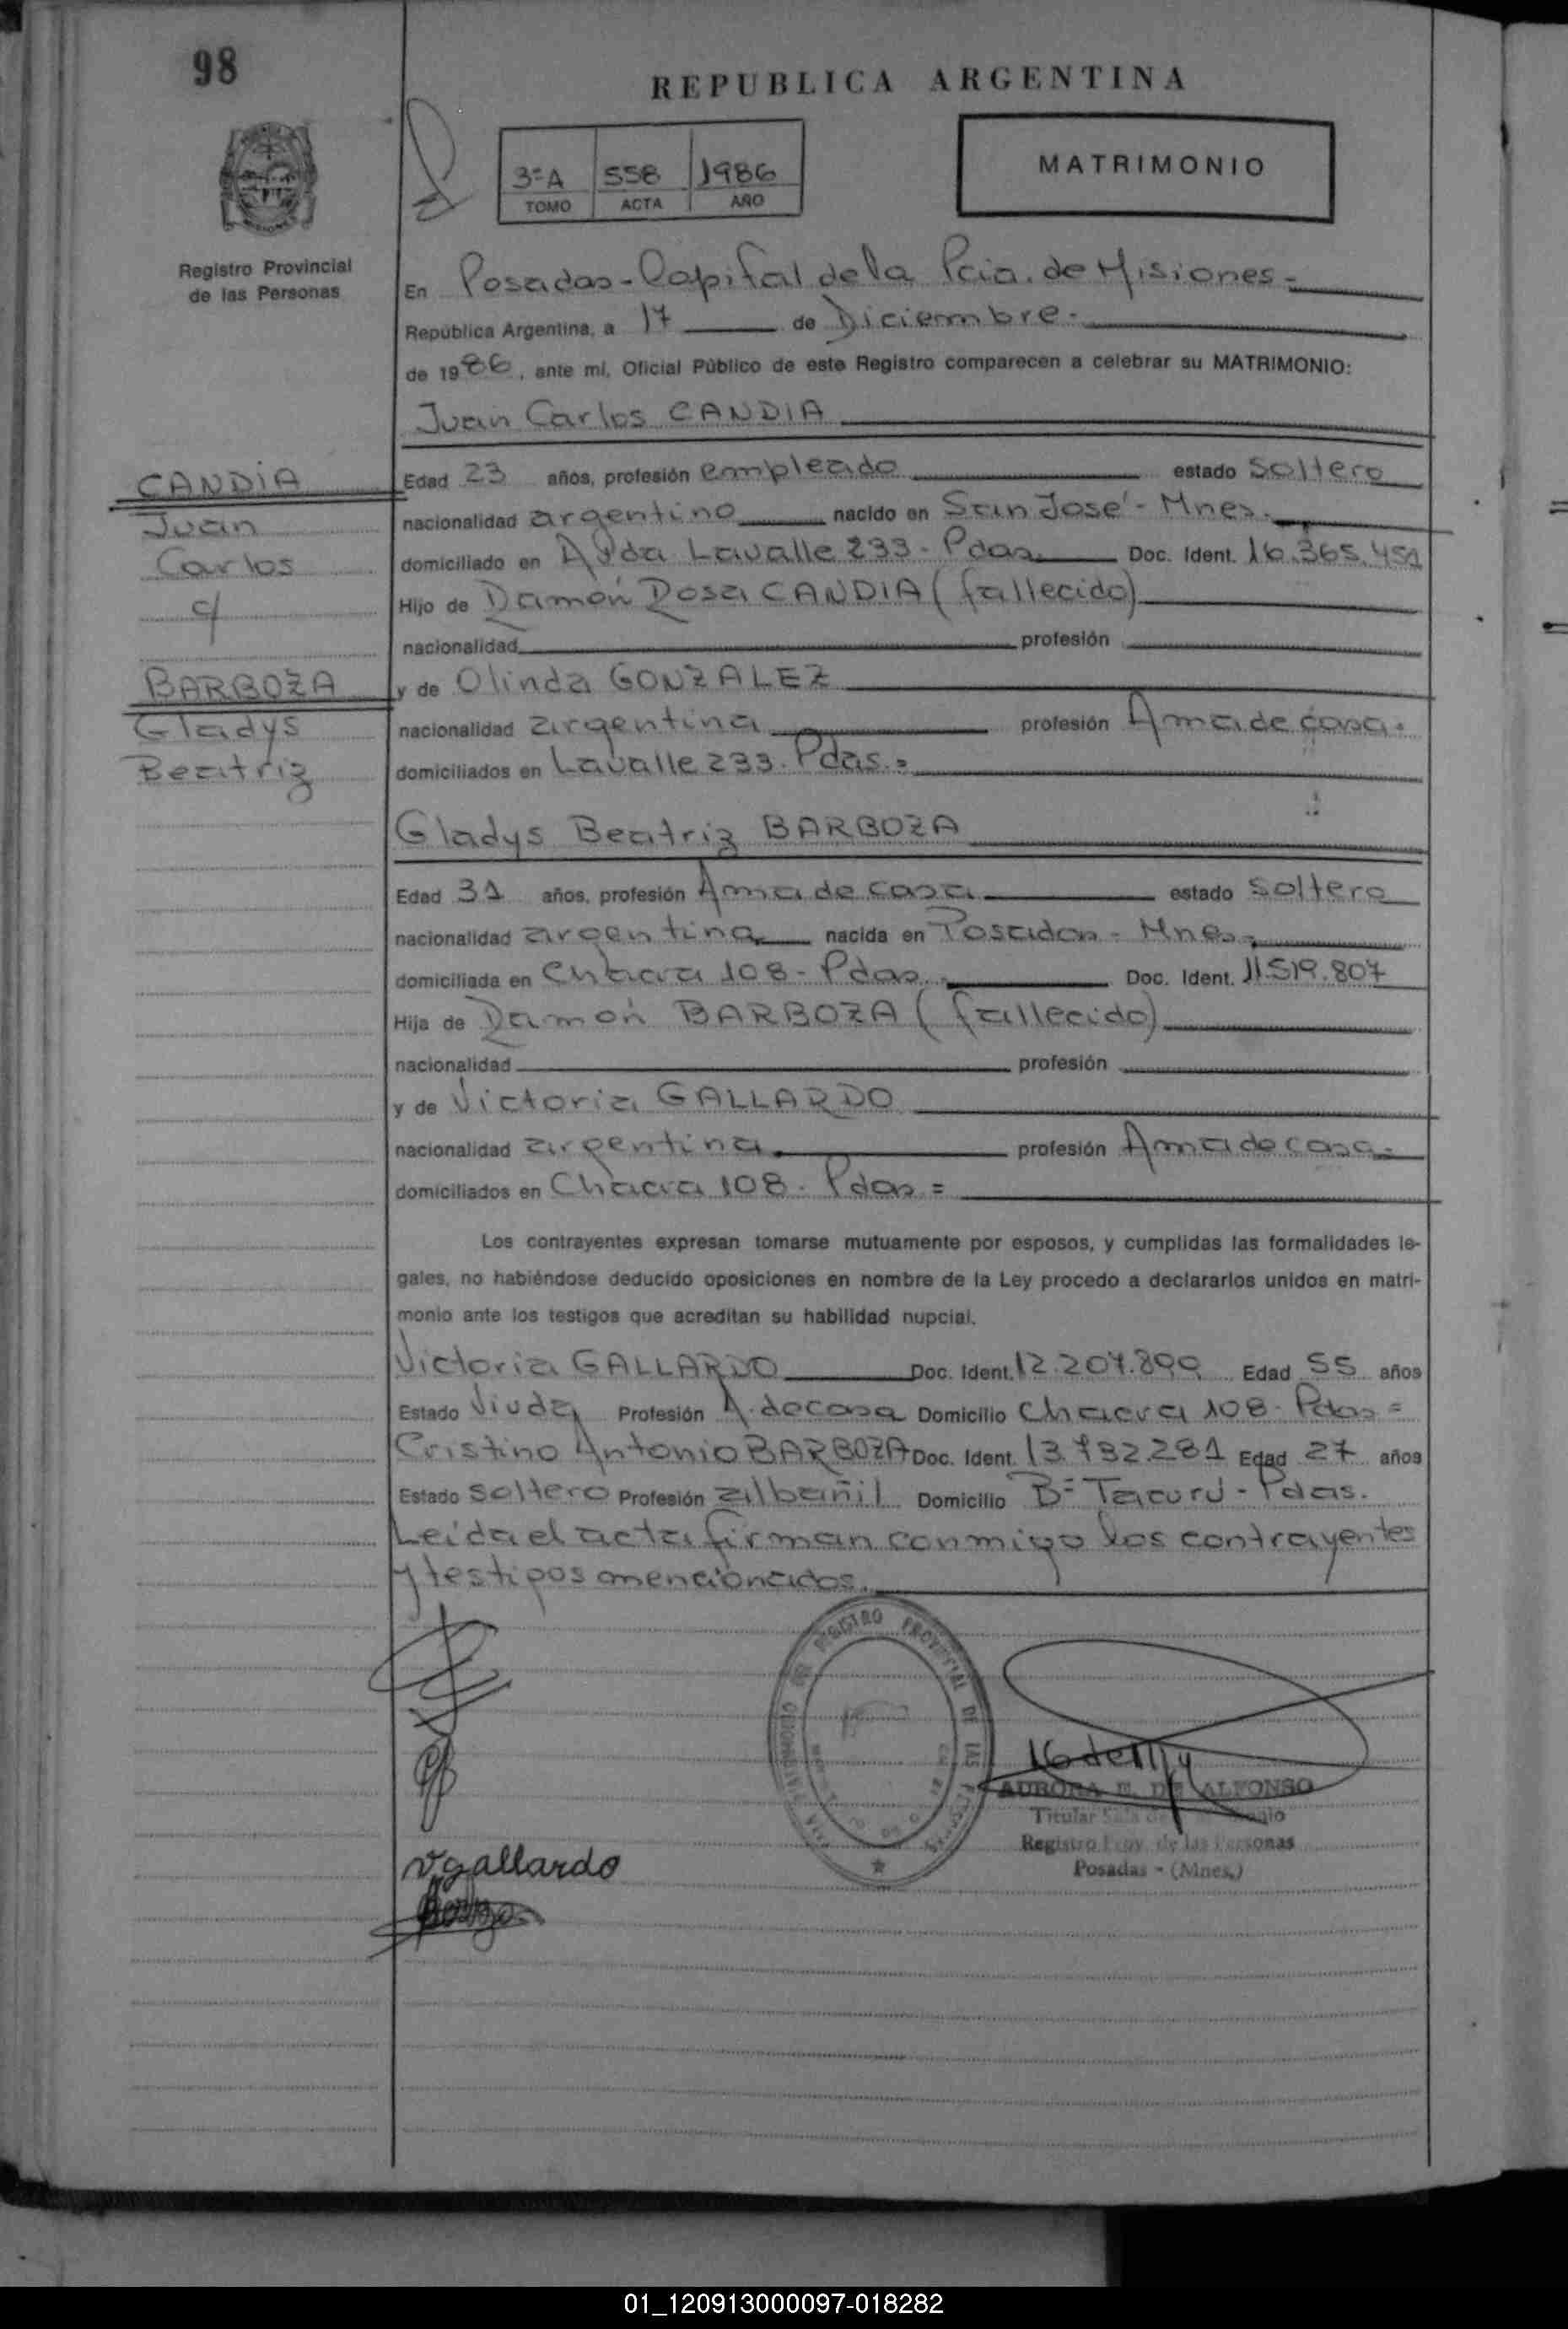 98
REPUBLICA ARGENTINA
3ºA 558 1986
TOMO ACTA AÑO
MATRIMONIO
Registro Provincial
de las Personas
En Posadas - Capital de la Pcia. de Misiones =
República Argentina, a 17 de Diciembre -
de 1986, ante mí, Oficial Público de este Registro comparecen a celebrar su MATRIMONIO:
Juan Carlos CANDIA
CANDIA
Juan
Carlos
c/
BARBOZA
Gladys
Beatriz
Edad 23 años, profesión empleado estado soltero
nacionalidad argentino nacido en San José - Mnes.
domiciliado en Avda Lavalle 233 - Pdas. Doc. Ident. 16.365.451
Hijo de Ramón Rosa CANDIA (fallecido)
nacionalidad profesión
y de Olinda GONZALEZ
nacionalidad argentina profesión Ama de casa.
domiciliados en Lavalle 233. Pdas. =
Gladys Beatriz BARBOZA
Edad 31 años, profesión Ama de casa estado soltera
nacionalidad argentina nacida en Posadas - Mnes.
domiciliada en Chacra 108 - Pdas. Doc. Ident. 11.519.807
Hija de Ramón BARBOZA (fallecido)
nacionalidad profesión
y de Victoria GALLARDO
nacionalidad argentina profesión Ama de casa.
domiciliados en Chacra 108 - Pdas =
Los contrayentes expresan tomarse mutuamente por esposos, y cumplidas las formalidades le-
gales, no habiéndose deducido oposiciones en nombre de la Ley procedo a declararlos unidos en matri-
monio ante los testigos que acreditan su habilidad nupcial.
Victoria GALLARDO Doc. Ident. 12.207.899 Edad 55 años
Estado Viuda Profesión A. de casa Domicilio Chacra 108 - Pdas =
Cristino Antonio BARBOZA Doc. Ident. 13.732.281 Edad 27 años
Estado soltero Profesión albañil Domicilio Bº Tacurú - Pdas.
Leída el acta firman conmigo los contrayentes
y testigos mencionados.
REGISTRO PROVINCIAL DE LAS PERSONAS
AURORA E. DE ALFONSO
Titular Sala de
Registro Prov. de las Personas
Posadas - (Mnes.)
V gallardo
01_120913000097-018282